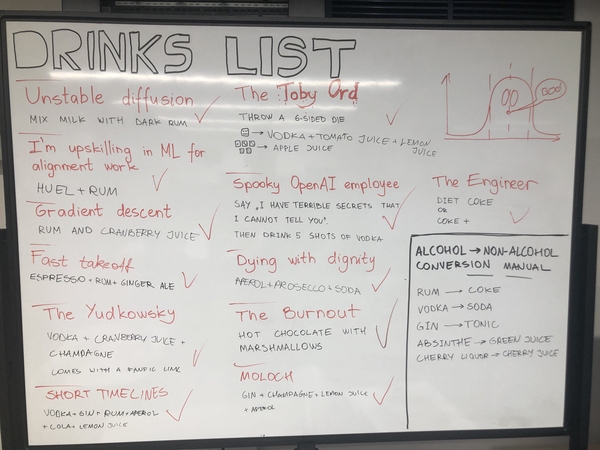 DRINKS LIST
Unstable diffusion
MIX MILK WITH DARK RUM
I'm upskilling in ML for
alignment work
HUEL + RUM
Gradient descent
RUM AND CRANBERRY JUICE
Fast takeoff
ESPRESSO + RUM + GINGER ALE
The Yudkowsky
VODKA + CRANBERRY JUICE +
CHAMPAGNE
COMES WITH A FANFIC LINK
SHORT TIMELINES
VODKA + GIN + RUM + APEROL
+ COLA + LEMON JUICE
The Toby Ord
THROW A 6-SIDED DIE
→ VODKA + TOMATO JUICE + LEMON
JUICE
→ APPLE JUICE
Spooky OpenAI employee
SAY "I HAVE TERRIBLE SECRETS THAT
I CANNOT TELL YOU".
THEN DRINK 5 SHOTS OF VODKA
Dying with dignity
APEROL + PROSECCO + SODA
The Burnout
HOT CHOCOLATE WITH
MARSHMALLOWS
MOLOCH
GIN + CHAMPAGNE + LEMON JUICE
+ APEROL
The Engineer
DIET COKE
OR
COKE +
ALCOHOL → NON-ALCOHOL
CONVERSION MANUAL
RUM → COKE
VODKA → SODA
GIN → TONIC
ABSINTHE → GREEN JUICE
CHERRY LIQUOR → CHERRY JUICE